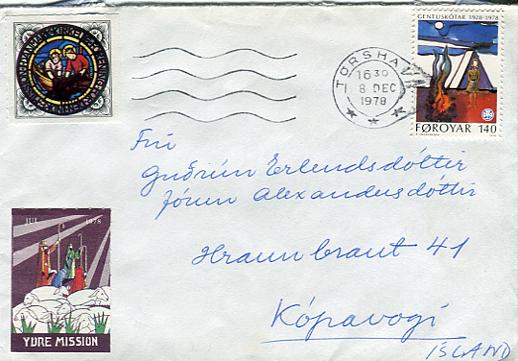 GENTUSKÓTAR 1928-1978
FØROYAR 140
TÓRSHAVN
16 30
8 DEC
1978
Frú
Guðrún Erlendsdóttir
Jónu Alexandersdóttir
Hraunbraut 41
Kópavogi
ÍSLAND
JUL 1978
YDRE MISSION